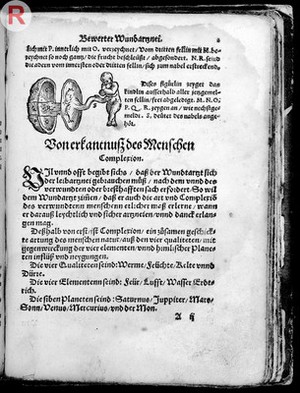 R
Bewerter Wundartznei.
2
lich mit P. innerlich mit O. verzeychnet / Vom dritten fellin mit M. be⸗
zeychnet so noch gantz / die frucht beschleüßt / abgesondert. N. R. seind
die adern vom innersten oder dritten fellin / sich zum nabel erstreckend.
Dises figürlin zeyget das
kindlin ausserhalb aller jetzgemel⸗
ten fellin / frei abgeledigt. M. N. O.
P. Q. R. zeygen an / wie nechst ge⸗
melt. S. deütet des nabels ange⸗
hör.
Von erkantnuß des Menschen
Complexion.
Vil vnnd offt begibt sichs / daß der Wundtartzt sich
der leibartznei gebrauchen muß / nach dem vnnd der
verwundten oder bresthafften sach erfordert. So wil
dem Wundtartzt zimen / daß er auch die art vnd Complexio
des verwundten menschenn etlicher maß erlerne / wann
er darauß leychtlich vnd sicher artzneien / vnnd danck erlan⸗
gen mag.
Deßhalb von erst / ist Complexion / ein zusamen geschick⸗
te artung des menschen natur / auß den vier qualiteten / mit
eingemwirckung der vier elementen / vnnd himlischer Planet⸗
ten inflüß vnd neygungen.
Die vier Qualiteten seind: Werme / Feüchte / Kelte vnnd
Dürre.
Die vier Elementenn seind: Feür / Lufft / Wasser / Erdt⸗
rich.
Die siben Planeten seind: Saturnus / Juppiter / Mars
Sonn / Venus / Mercurius / vnd der Mon.
A ij